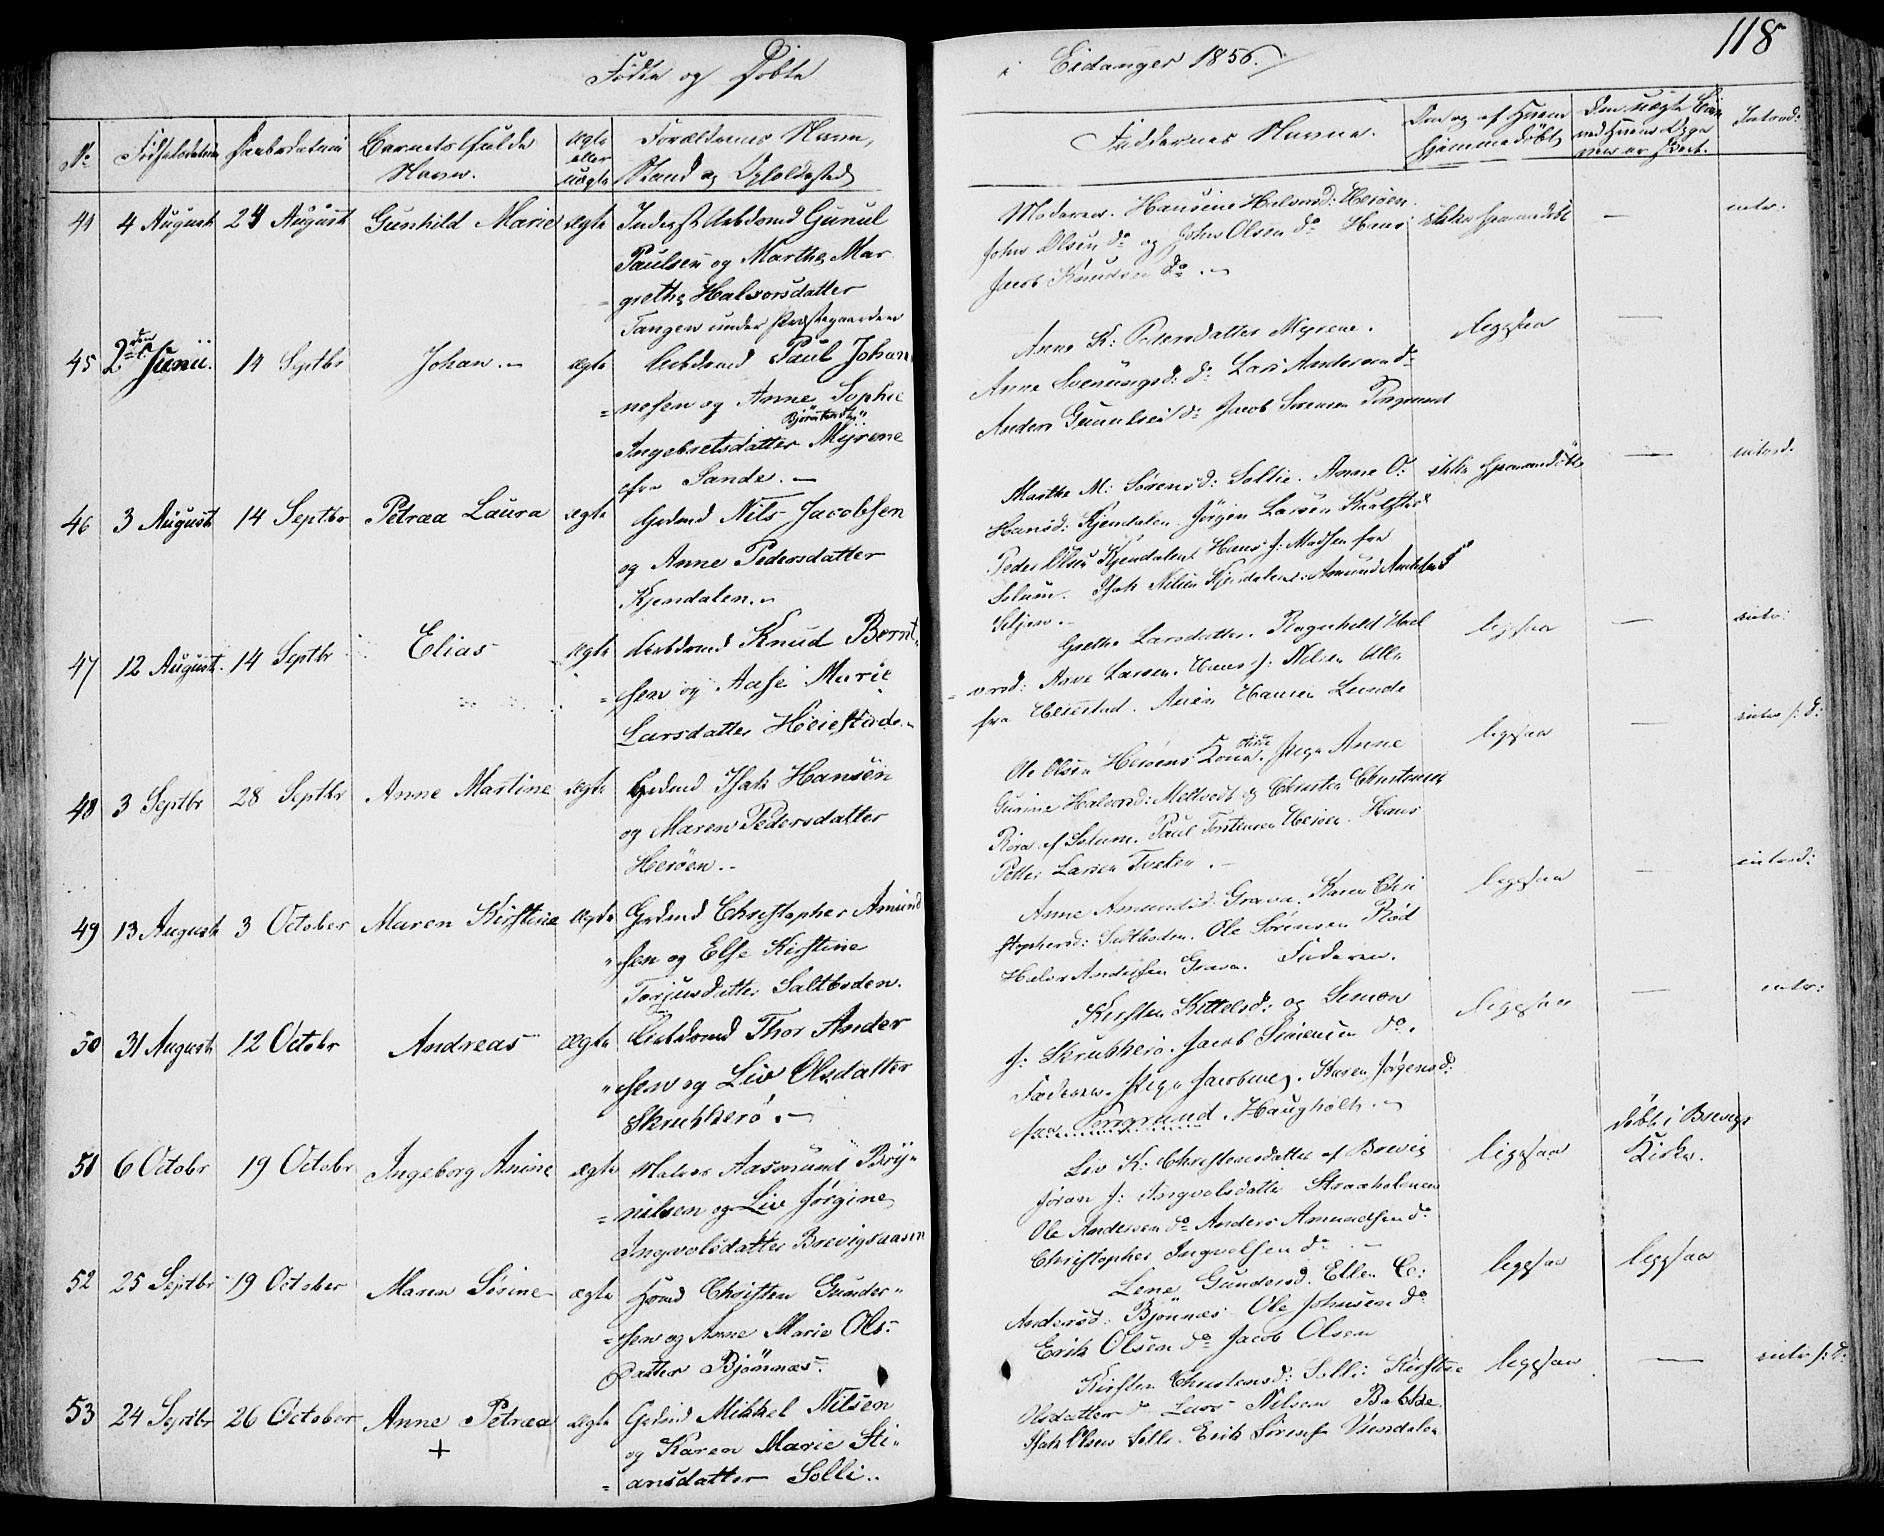 Fødte og Døbte
i Eidanger 1856.
118
No
Fødselsdatum
Daabsdatum
Barnets fulde
Navn.
ægte
eller
uægte
Forældrenes Navn,
Stand og Opholdssted
Faddernes Navne.
Om og af Hvem
hjemmedøbt
Introd:
44
4 August
24 August
Gunhild Marie
ægte
Inderst Arbdsmd Gunul
Paulsen og Marthe Mar
grethe Halvorsdatter
Tangen under Præstegaarden
Moderen. Hansine Halvorsd: Herøen.
John Olsen do og John Olsen do Hans
Jacob Knudsen do
ikke hjemmedøbt
—
intr.
45
2den Junii.
14 Septbr
Johan.
ægte
Arbdsmd Paul Johan
=nesen og Anne Sophie
Ingebretsdatter Myrene
fra Sande.
Anne K: Pedersdatter Myrene.
Anne Svenungsd: do Lars Andersen do
Anders Gunulsen do Jacob Sørensen Porsgrund
ligesaa
—
46
3 August
14 Septbr
Petræa Laura
ægte
Grdmd Nils Jacobsen
og Anne Pedersdatter
Kjendalen.
Marthe M: Sørensd: Sollie. Anne O:
Hansd: Kjendalen. Jørgen Larsen
Peder Olsen Kjendalen Hans J: Madsen fra
Solum. Isak Nilsen Kjendalen. Amund
ikke hjemmedøbt
—
introd.
47
12 August
14 Septbr
Elias
ægte
Arbdsmd Knud Bernt
=sen og Aase Marie
Larsdatter Heiestad.
Grethe Larsdatter. Ragnhild Hal
=vorsd: Anve Larsen. Hans J: Nilsen Alle
fra Heiestad. Anen Hansen Lunde
ligesaa
—
intr:
48
3 Septbr
28 Septbr
Anne Martine
ægte
Grdmd Isak Hansen
og Maren Pedersdatter
Herøen.
Ole Olsen Herøens Kone. Pige Anne
Gurine Halvorsd: Mittvedt og Christen Christensen
Rora af Solum. Paul Torstensen Herøen. Hans
Petter Larsen Tveten.
ligesaa
—
49
13 August
3 October
Maren Kirstine
ægte
Grdmd Christopher Amund
"sen og Else Kirstine
Torjusdatter Saltboden.
Anne Amundsd: Grava. Karen Chri
stophersd: Saltboden. Ole Sørensen Rød
Halvor Andersen Grava. Faderen.
ligesaa
—
introd:
50
31 August
12 Octobr
Andreas
ægte
Arbdsmd Thor Ander
"sen og Liv Olsdatter
Skrukkerø.
Kirsten Kittelsd: og Simon
J: Skrukkerø. Jacob Simensen do.
Faderen. Pige Jacobine. Karen Jørgensd:
fra Porsgrund. Haugholt.
ligesaa
—
intr:
51
6 Octobr
19 Octobr
Ingeborg Anine
ægte
Matros Aasmund Bry=
=nilsen og Liv Jørgine
Ingvolsdatter Brevigsaasen
Liv K: Christensdatter af Brevig
Jøran J: Ingvolsdatter Straaholmen
Ole Andersen do Anders Amundsen do
Christopher Ingvolsen do
ligesaa
døbt i Brevigs
Kirke.
52
25 Septbr
19 October
Maren Sørine
ægte
Hmd Christen Gunder=
=sen og Anne Marie Ols=
datter Bjønnæs.
Lene Gundersd. Ellen C:
Andersd: Bjønnæs. Ole Johnsen do
Erik Olsen do Jacob Olsen
ligesaa
ligesaa
53
24 Septbr
26 October
Anne Petræa
+
ægte
Grdmd Mikkel Nilsen
og Karen Marie Sti=
=ansdatter Solli.
Kirsten Christensd: Solli: Kirstine
Olsdatter do Lars Nilsen Bakke
Isak Olsen Solli. Erik Sørens
ligesaa
—